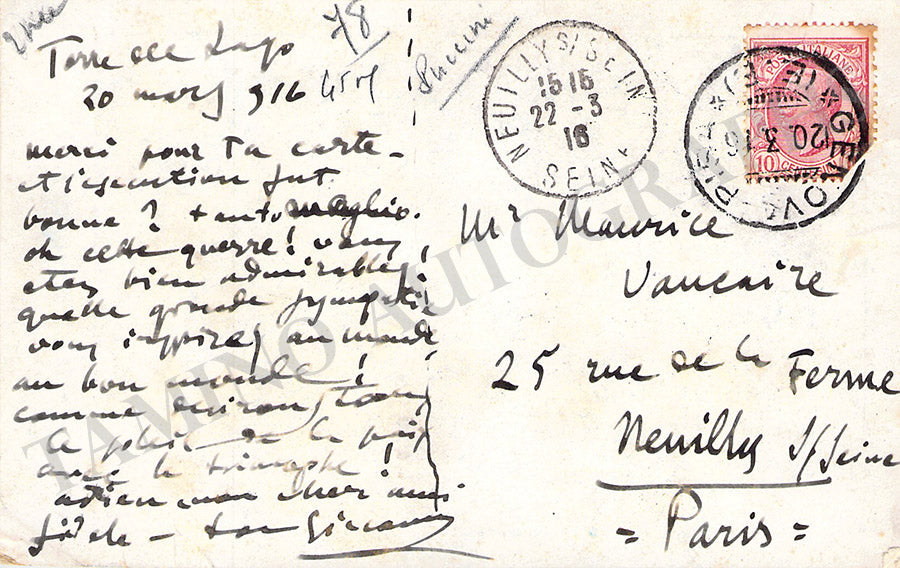 Torre del Lago
20 mars 916
78
Puccini
merci pour ta carte -
et l'execution fut
bonne? tanto meglio.
oh cette guerre! vous
etes bien admirables,
quelle grande sympatie
vous inspirez au monde
au bon monde!
comme
le soleil de la paix
avec le triomphe!
adieu mon cher ami
fidele - ton Giacomo
NEUILLY S/SEINE
15 15
22 -3
16
SEINE
POSTE ITALIANE
10 CENT
GENOVA-PISA
20.3.16
Mr Maurice
Vaucaire
25 rue de la Ferme
Neuilly s/Seine
= Paris =
TAMINO AUTOGRAPHS